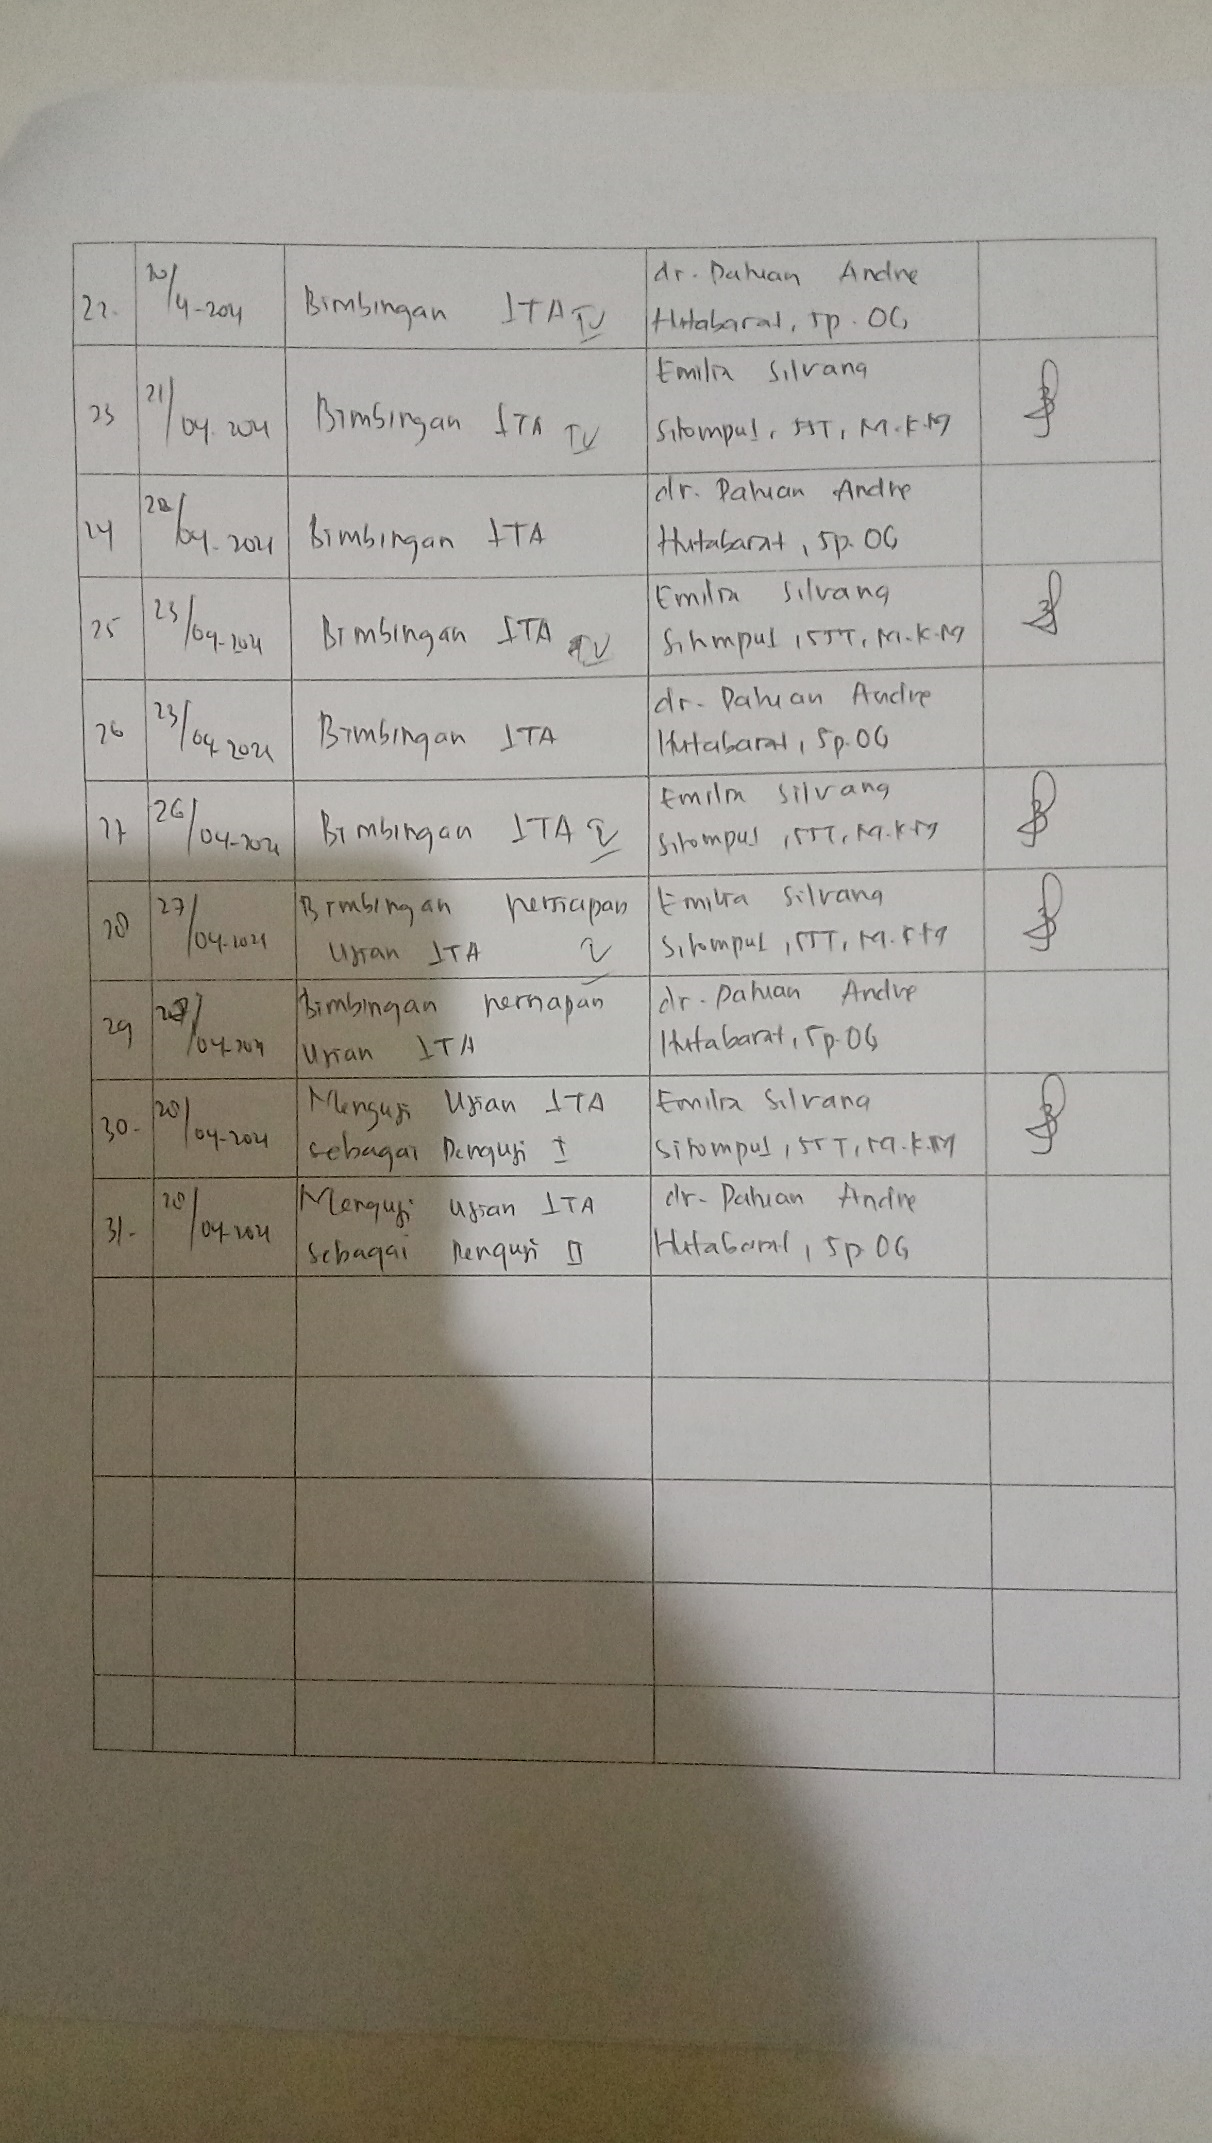 22. 20/4-2021 Bimbingan ITA IV dr. Dahian Andre
Hutabarat, Sp. OG
23 21/04.2021 Bimbingan ITA IV Emilia Silvana
Sitompul, SST, M.K.M
24 /04.2021 Bimbingan ITA dr. Dahian Andre
Hutabarat, Sp. OG
25 23/04-2021 Bimbingan ITA IV Emilia Silvana
Sitompul, SST, M.K.M
26 23/04 2021 Bimbingan ITA dr. Dahian Andre
Hutabarat, Sp. OG
27 26/04-2021 Bimbingan ITA V Emilia Silvana
Sitompul, SST, M.K.M
28 27/04-2021 Bimbingan persiapan Emilia Silvana
Ujian ITA V Sitompul, SST, M.KM
29 /04-2021 Bimbingan persiapan dr. Dahian Andre
Ujian ITA Hutabarat, Sp. OG
30. 28/04-2021 Menguji Ujian ITA Emilia Silvana
sebagai Penguji I Sitompul, SST, M.K.M
31. 28/04-2021 Menguji Ujian ITA dr. Dahian Andre
sebagai Penguji II Hutabarat, Sp. OG